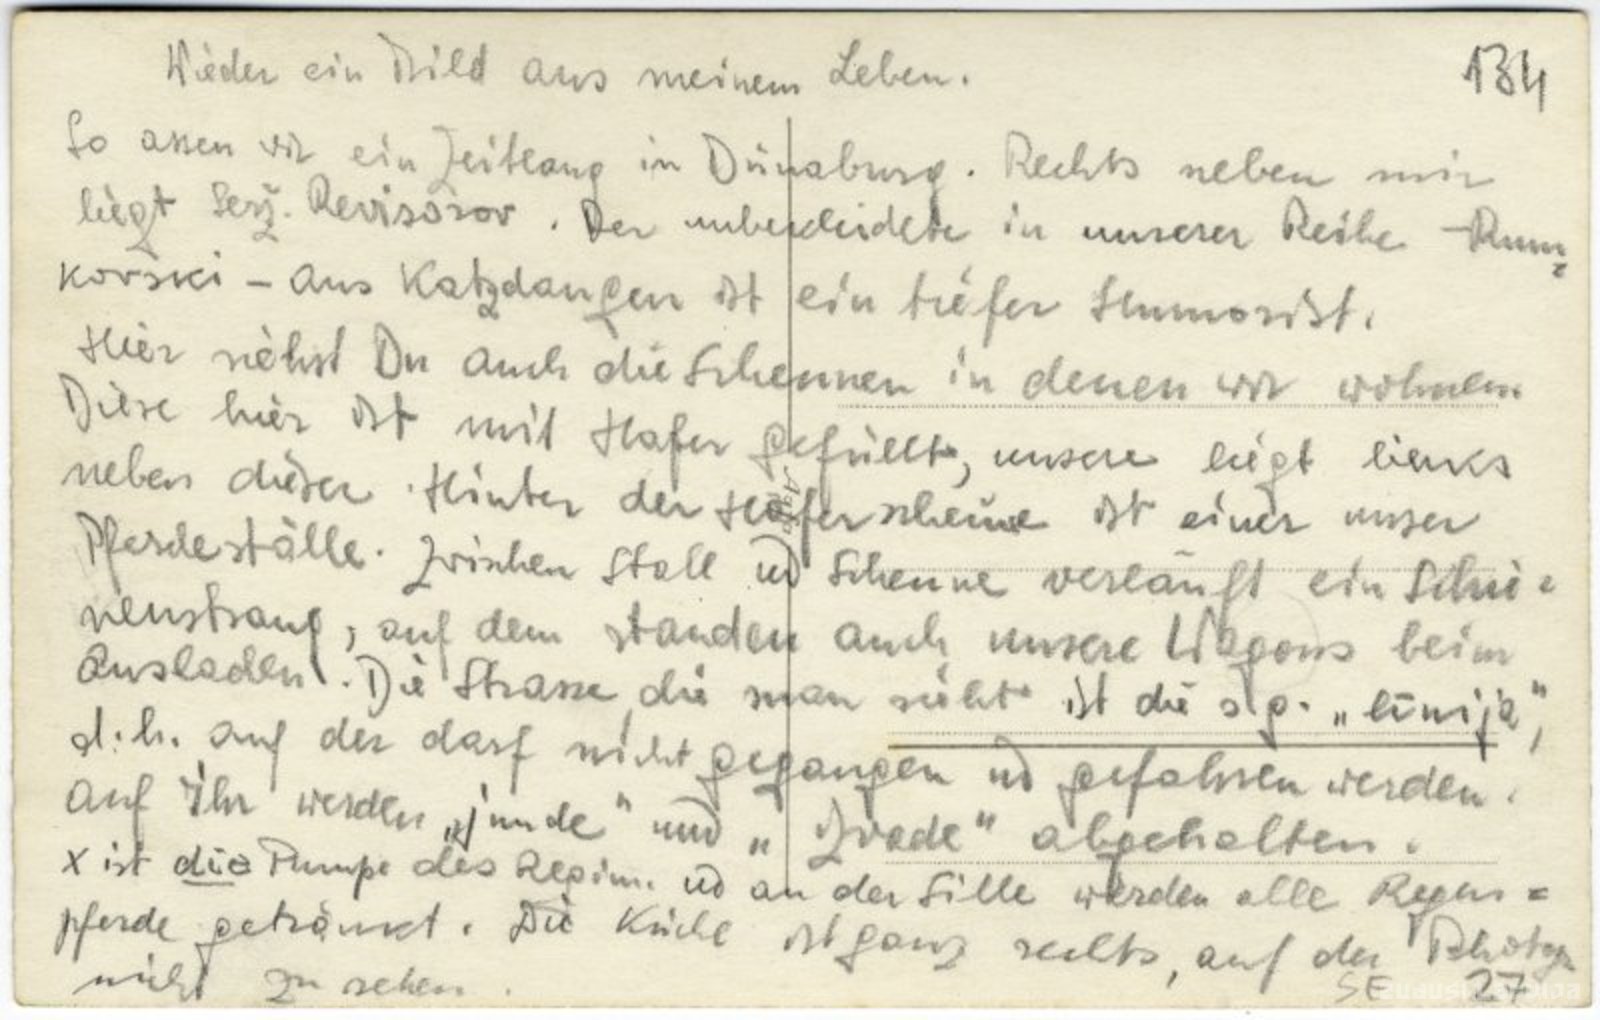 Wieder ein Bild aus meinem Leben.
134
So assen wir ein Zeitlang in Dünaburg. Rechts neben mir
liegt Serž. Revisorov. Der unbekleidete in unserer Reihe – Rum=
kovski – aus Katzdangen ist ein tiefer Humorist.
Hier siehst Du auch die Scheunen in denen wir wohnen.
Diese hier ist mit Hafer gefüllt, unsere liegt links
neben dieser. Hinter der Haferscheune ist einer unser
Pferdeställe. Zwischen Stall ud Scheune verläuft ein Schie=
nenstrang, auf dem standen auch unsere Wagons beim
Ausladen. Die Strasse die man sieht ist die s.g. „linija",
d.h. auf der darf nicht gegangen ud gefahren werden.
Auf ihr werden „junde" und „Zvade" abgehalten.
x ist die Pumpe des Regim. ud an der Sille werden alle Regim=
pferde getränkt. Die Küche ist ganz rechts, auf der Photogr
nicht zu sehen.
SE 27